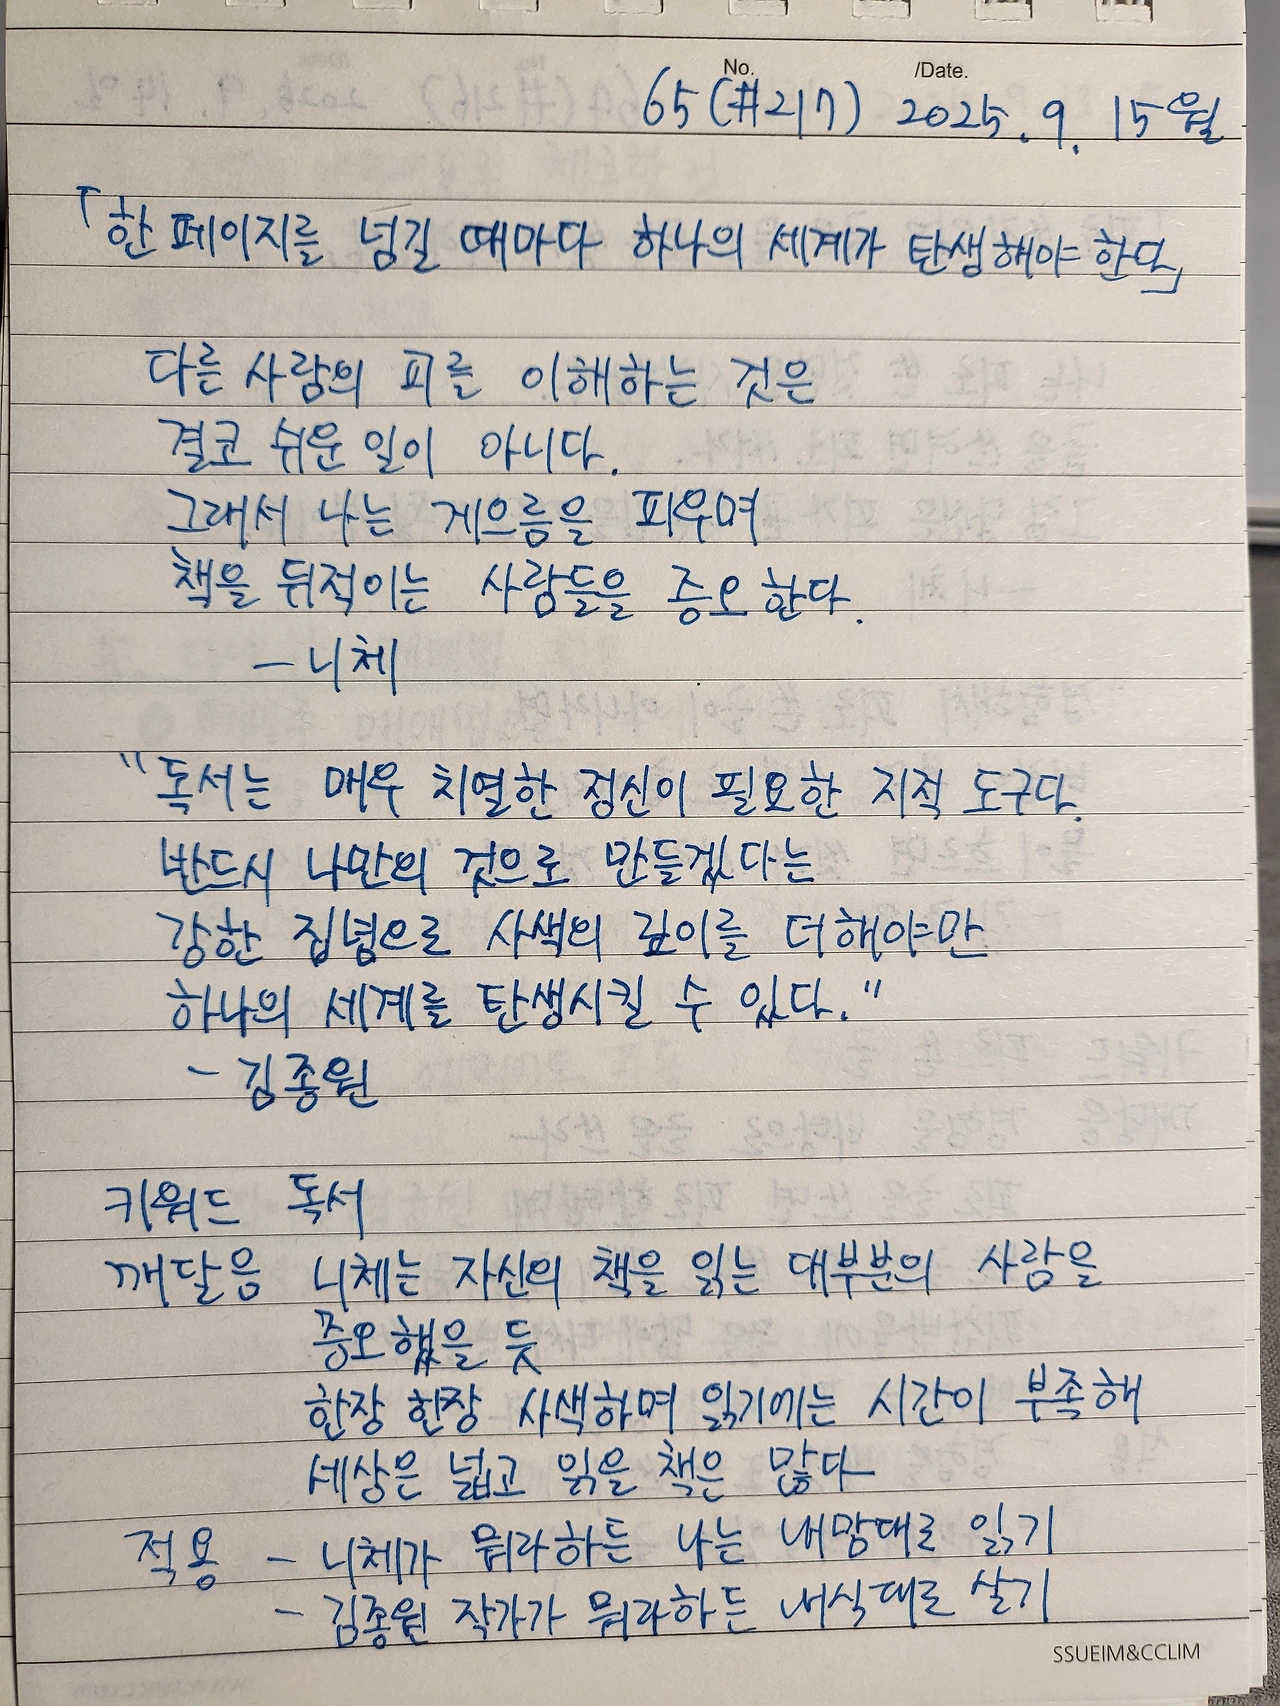 No. /Date.
65(#217) 2025. 9. 15 월
「한 페이지를 넘길 때마다 하나의 세계가 탄생해야 한다」
다른 사람의 피를 이해하는 것은
결코 쉬운 일이 아니다.
그래서 나는 게으름을 피우며
책을 뒤적이는 사람들을 증오한다.
- 니체
"독서는 매우 치열한 정신이 필요한 지적 도구다.
반드시 나만의 것으로 만들겠다는
강한 집념으로 사색의 깊이를 더해야만
하나의 세계를 탄생시킬 수 있다."
- 김종원
키워드 독서
깨달음 니체는 자신의 책을 읽는 대부분의 사람을
증오했을 듯
한장 한장 사색하며 읽기에는 시간이 부족해
세상은 넓고 읽을 책은 많다
적용 - 니체가 뭐라하든 나는 내맘대로 읽기
- 김종원 작가가 뭐라하든 내식대로 살기
SSUEIM&CCLIM